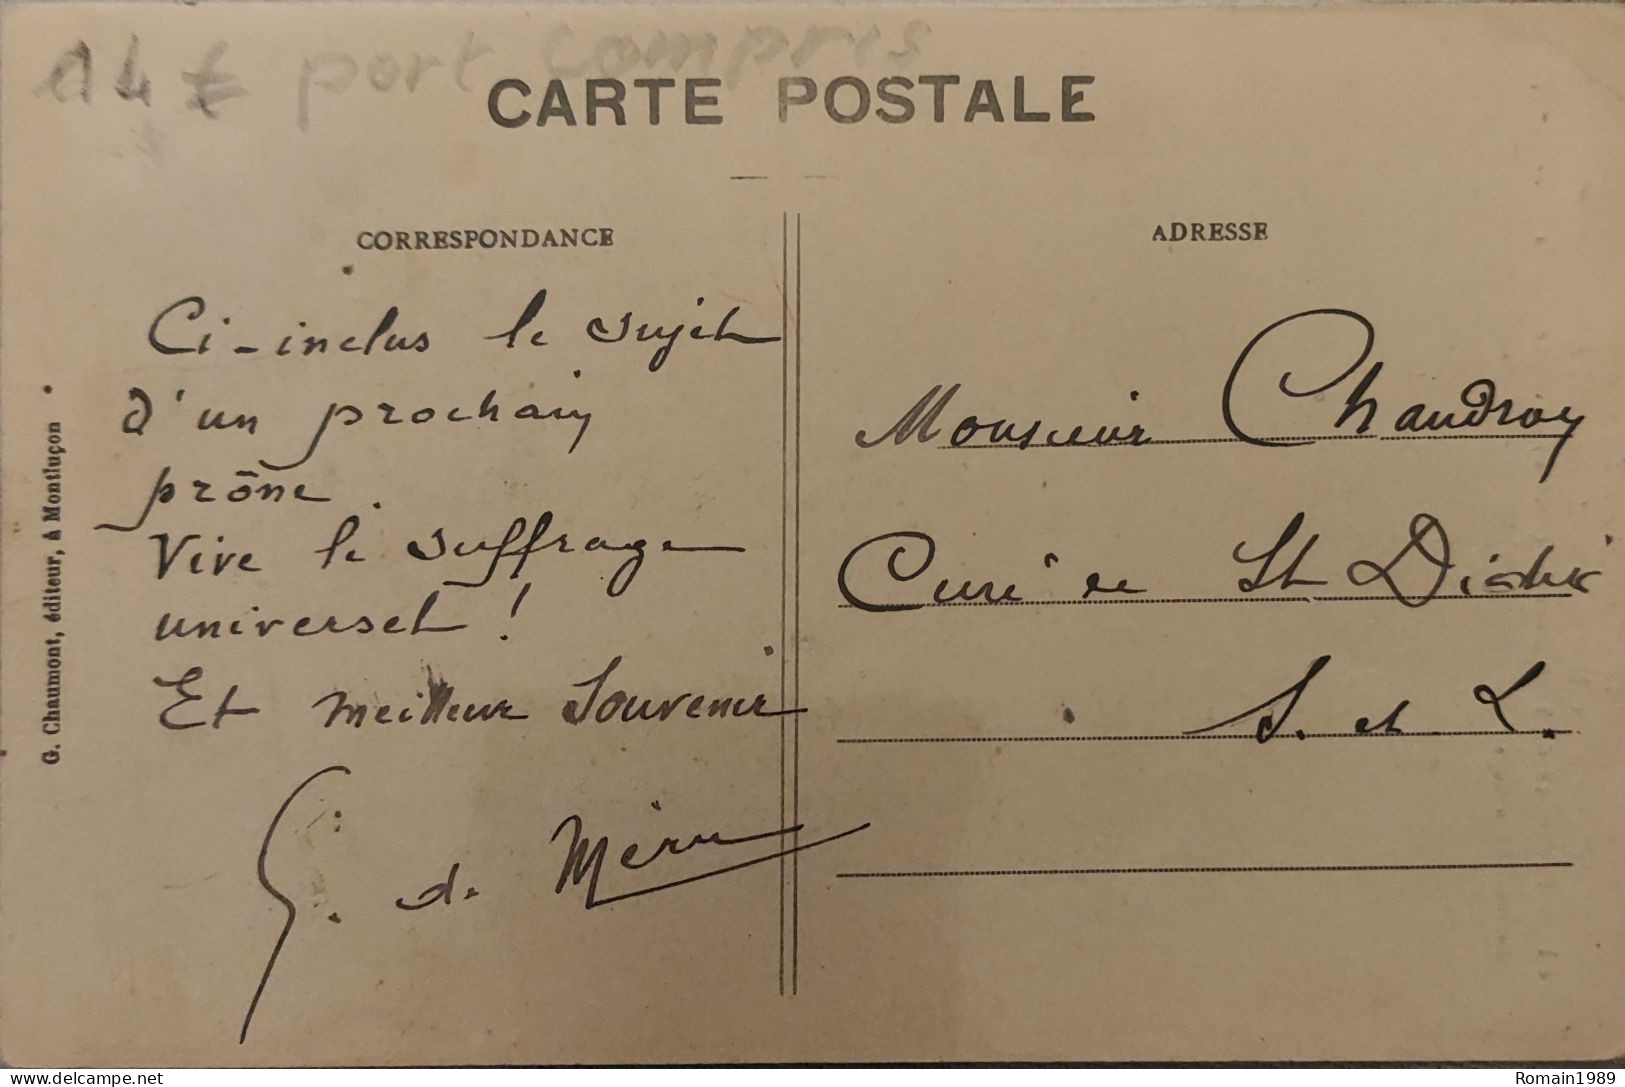 14 € port compris
CARTE POSTALE
CORRESPONDANCE
Ci-inclus le sujet
d'un prochain
prône.
Vive le suffrage
universel !
Et meilleur Souvenir
G. de Méru
ADRESSE
Monsieur Chaudroy
Curé de St Didier
S. et L.
G. Chaumont, éditeur, à Montluçon
Romain1989